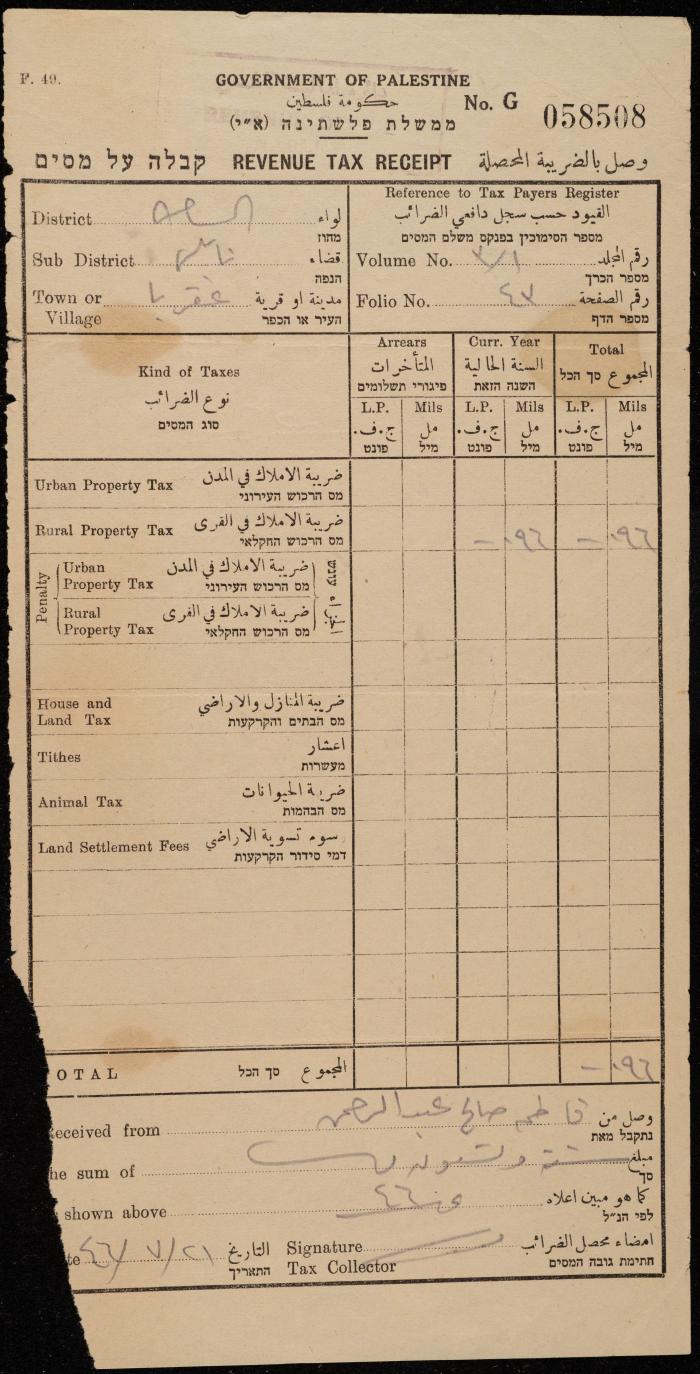 F. 49.
GOVERNMENT OF PALESTINE
حكومة فلسطين
No. G 058508
ממשלת פלשתינה (א״י)
קבלה על מסים REVENUE TAX RECEIPT وصل بالضريبة المحصلة
District السامرة لواء
מחוז
Sub District نابلس قضاء
הנפה
Town or Village عقربا مدينة او قرية
העיר או הכפר
Reference to Tax Payers Register
القيود حسب سجل دافعي الضرائب
מספר הסימוכין בפנקס משלם המסים
Volume No. ٣/١ رقم المجلد
מספר הכרך
Folio No. ٤٣ رقم الصفحة
מספר הדף
Kind of Taxes
نوع الضرائب
סוג המסים
Arrears
المتأخرات
פיגורי תשלומים
Curr. Year
السنة الحالية
השנה הזאת
Total
المجموع סך הכל
L.P. Mils L.P. Mils L.P. Mils
ج.ف. مل ج.ف. مل ج.ف. مل
פונט מיל פונט מיל פונט מיל
Urban Property Tax ضريبة الاملاك في المدن
מס הרכוש העירוני
Rural Property Tax ضريبة الاملاك في القرى
מס הרכוש החקלאי
— ٠٩٦ — ٠٩٦
Penalty
Urban Property Tax ضريبة الاملاك في المدن
מס הרכוש העירוני
Rural Property Tax ضريبة الاملاك في القرى
מס הרכוש החקלאי
עונש
House and Land Tax ضريبة المنازل والاراضي
מס הבתים והקרקעות
Tithes اعشار
מעשרות
Animal Tax ضريبة الحيوانات
מס הבהמות
Land Settlement Fees رسوم تسوية الاراضي
דמי סידור הקרקעות
OTAL סך הכל المجموع — ٠٩٦
eceived from فاطمه صالح عبد الرحمن وصل من
נתקבל מאת
he sum of ستة وتسعون مل مبلغ
סך
shown above ٤٦ كما هو مبين اعلاه
לפי הנ״ל
te ٤٦/٧/٢١ التاريخ
התאריך
Signature امضاء محصل الضرائب
Tax Collector חתימת גובה המסים